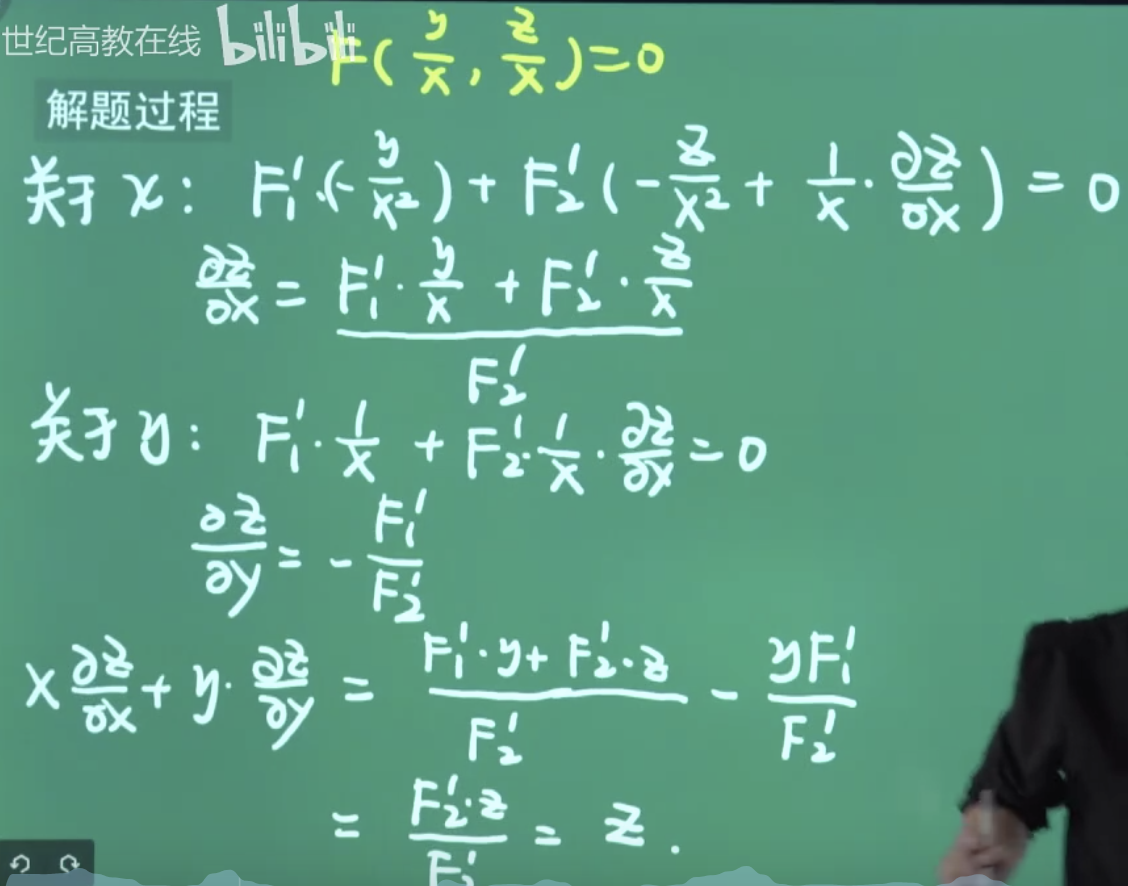 世纪高教在线 bilibili
F(y/x, z/x)=0
解题过程
关于 x: F₁′·(-y/x²) + F₂′(-z/x² + 1/x · ∂z/∂x) = 0
∂z/∂x = (F₁′·y/x + F₂′·z/x)/F₂′
关于 y: F₁′·1/x + F₂′·1/x·∂z/∂x = 0
∂z/∂y = -F₁′/F₂′
x ∂z/∂x + y·∂z/∂y = (F₁′·y + F₂′·z)/F₂′ - yF₁′/F₂′
= F₂′·z/F₂′ = z.